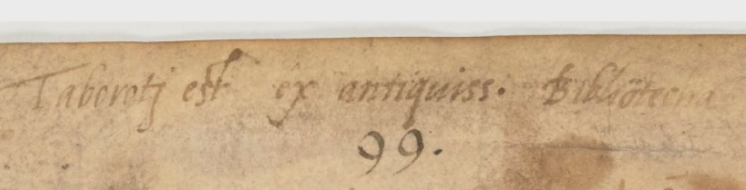 Taborotj est ex antiquiss. Bibliotecha
99.